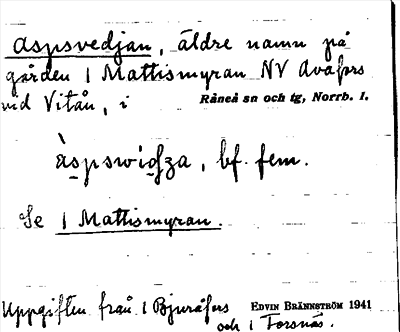 Aspsvedjan, äldre namn på
gården 1 Mattismyran NV Avafors
vid Vitån, i Råneå sn och tg, Norrb. l.
bf. fem.
Se 1 Mattismyran.
Uppgiften från 1 Bjuråfors EDVIN BRÄNNSTRÖM 1941
och 1 Forsnäs.